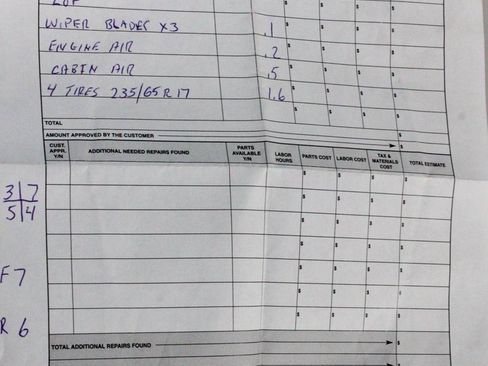 LOF
WIPER BLADES X3 .1 $ $ $ $
ENGINE AIR .2 $ $ $ $
CABIN AIR .5 $ $ $ $
4 TIRES 235/65R17 1.6 $ $ $ $
TOTAL $
AMOUNT APPROVED BY THE CUSTOMER $
CUST. APPR. Y/N ADDITIONAL NEEDED REPAIRS FOUND PARTS AVAILABLE Y/N LABOR HOURS PARTS COST LABOR COST TAX & MATERIALS COST TOTAL ESTIMATE
3|7
5|4
F 7
R 6
TOTAL ADDITIONAL REPAIRS FOUND $